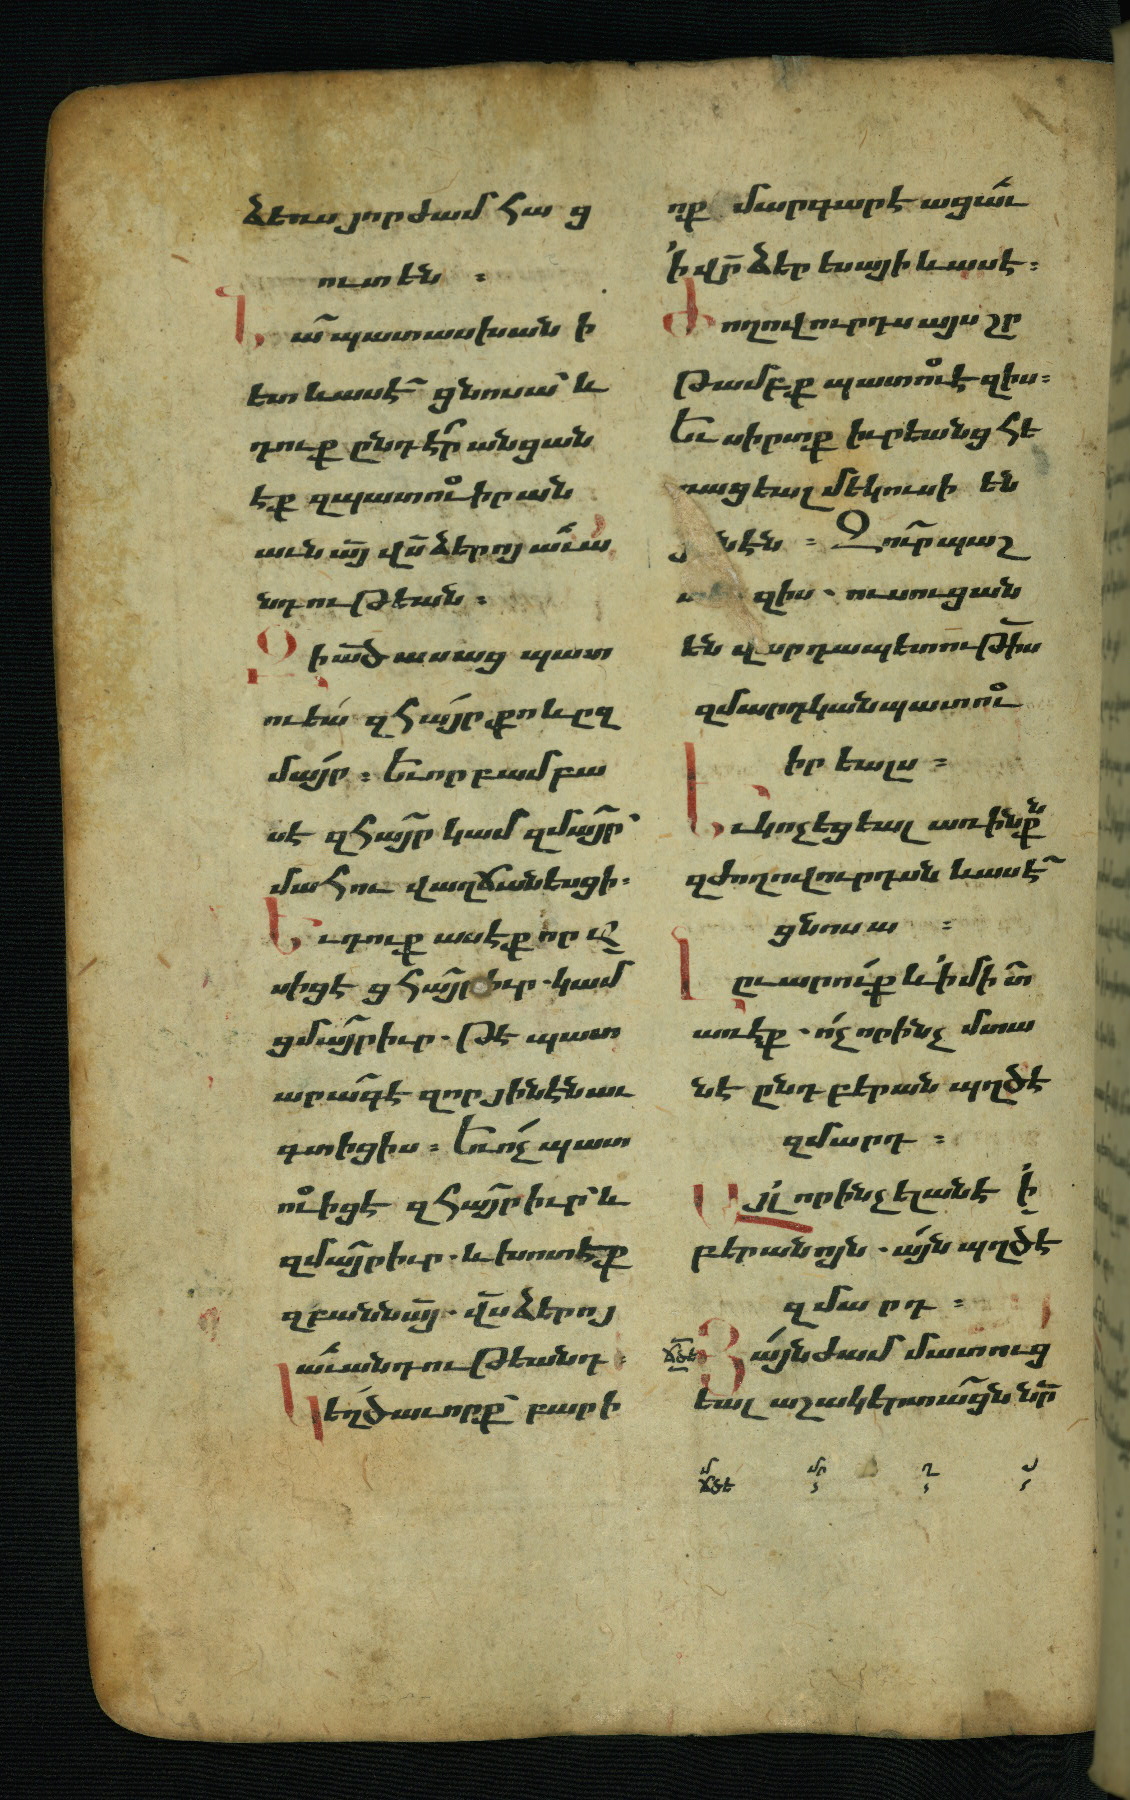 ձեռս յորժամ հաց
ուտեն ։
Նա՛ պատասխանի
ետ և ասէ՛ ցնոսա՛ և
դուք ընդէ՛ր անցան
էք զպատուիրան
աւն ա՟յ վ՟ս ձերոյ աւա
նդութեան ։
Զի ա՟ծ ասաց պատ
ուեա́ զհա́յր քո և ըզ
մա́յր ։ Եւ որ բամբա
սէ զհա՛յր կամ զմա՛յր՝
մահու վաղճանեսցի ։
Եւ դուք ասէք որ ա
սիցէ ցհա՛յր իւր . կամ
ցմա՛յր իւր . թէ պատ
արա՛գէ զոր յինէն աւ
գտիցիս ։ Եւ ո́չ պատ
ուիցէ զհա՛յր իւր՝ և
զմա՛յր իւր . և խոտէք
զբանն ա՟յ . վ՟ս ձերոյ
աւանդութեանդ ։
Կեղծաւորք՝ բարի
ոք մարգարէացաւ
ի վ՟ր ձեր եսայի և ասէ ։
Ժողովուրդս այս շըր
թամբք պատուէ զիս ։
Եւ սիրտք իւրեանց հե
ռացեալ մեկուսի են
յինէն ։ Զուր պաշ
զիս . ուսուցան
են վարդապետութի՟ս
զմարդկան պատու
իրեալս ։
Եւ կոչեցեալ առ ինքն
զժողովուրդսն և ասէ՛
ցնոսա ։
Լըւարու́ք և ի միտ
առէք . ո́չ որինչ մտա
նէ ընդ բերան պղծէ
զմարդ ։
Այլ որինչ ելանէ ի
բերանոյն . ա́յն պղծէ
զմարդ ։
ճծե Յա́յնժամ մատուց
եալ աշակերտացն նր
մ մր ղ յ
ճծե